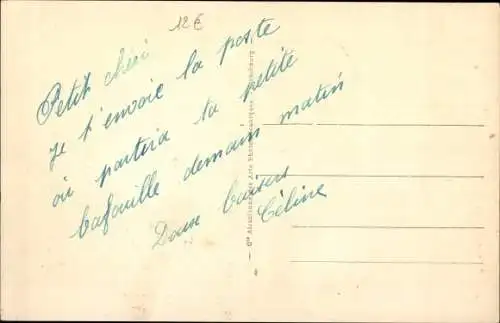 12€
Petit chéri
je t'envoie la poste
où partira ta petite
bafouille demain matin
Doux baisers
Céline
Cie Alsacienne des Arts Photomécaniques Strasbourg